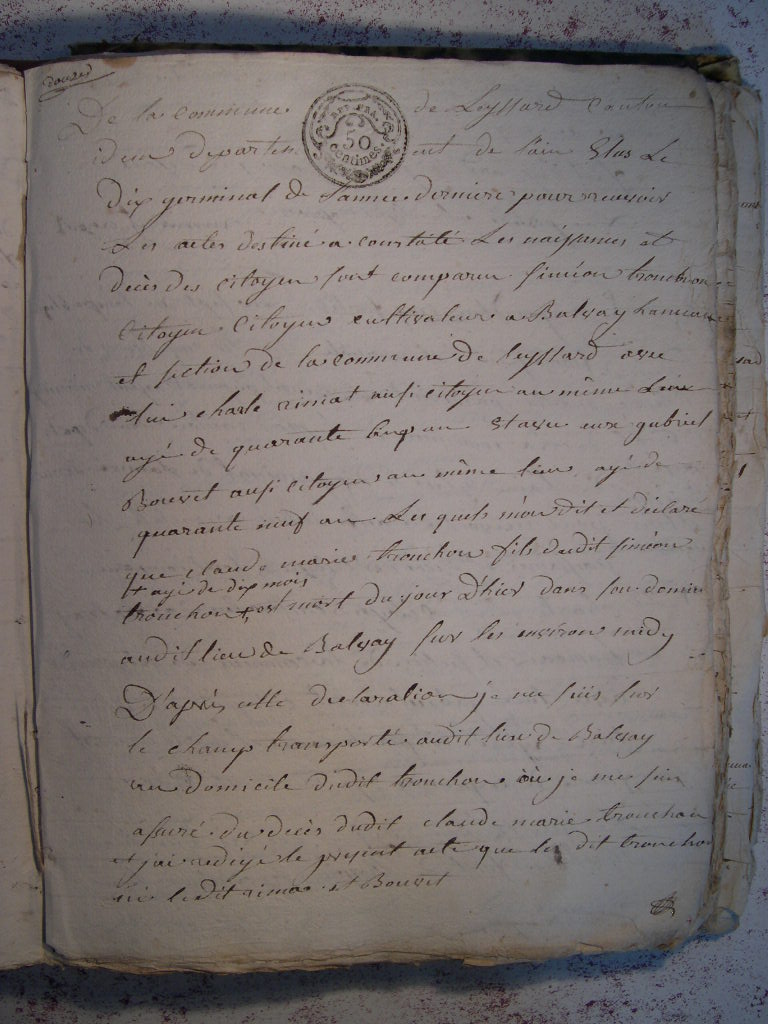 douze
De la commune de Leyssard canton
idem departement de l'ain Elus Le
REP. FRA.
50
centimes
Dix germinal de Lannee derniere pour recevoir
Les actes destiné a constaté Les naissances et
deces des citoyen sont comparu siméon tronchon
Citoyen Citoyen cultivateur a Balvay hameau
et section de la commune de leyssard avec
lui charle rimat ausi citoyen au même Lieu
agé de quarante cinq an et avec eux gabriel
Bouvet ausi citoyen au même lieu agé de
quarante neuf an Les quels m'on dit et déclaré
que claude marie tronchon fils dudit siméon
+ agé de dix mois
tronchon + est mort du jour D'hier dans son domi
audit lieu de Balvay sur les environ midy
D'après cette declaration je me suis sur
le champ transporté audit lieu de Balvay
au domicile dudit tronchon où je me suis
assuré du deces dudit claude marie tronchon
et j'ai redigé le present acte que le dit tronchon
ni le dit rima et Bouvet